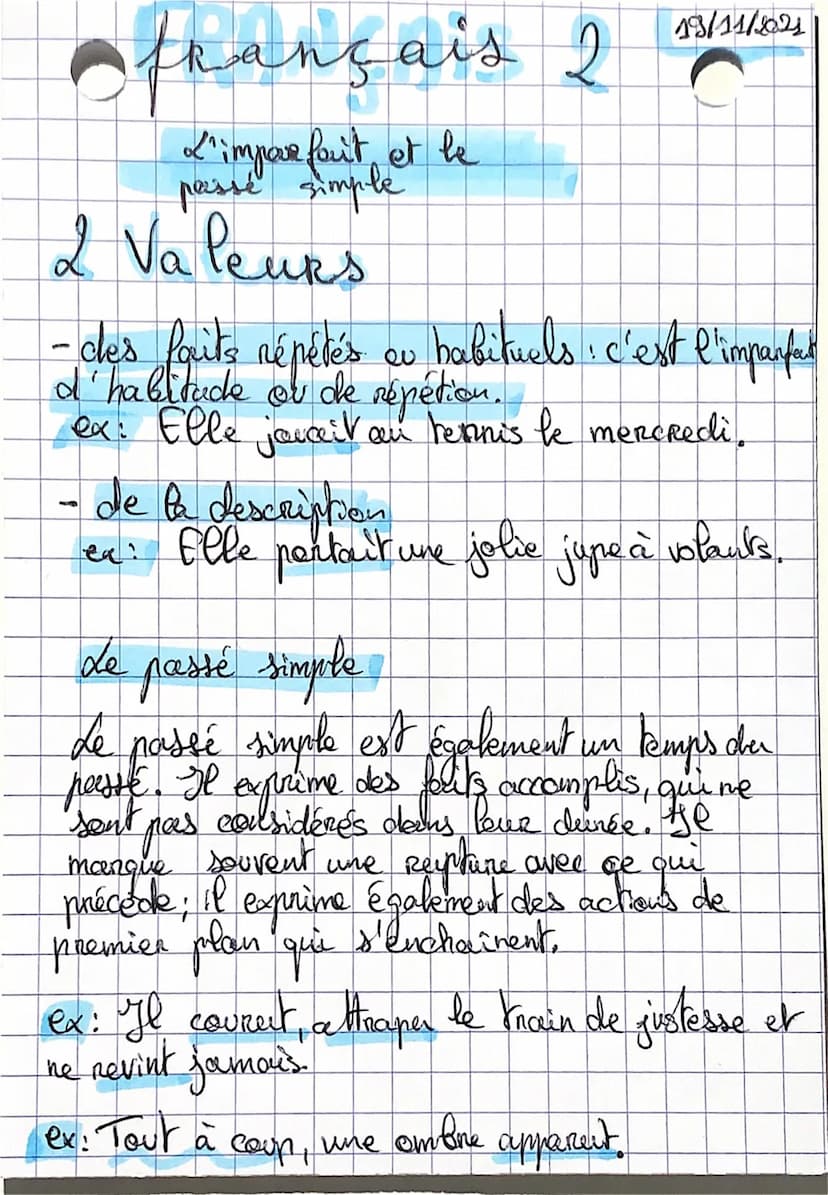 français 2
19/11/2021
L'imparfait et le
passé simple
2 Valeurs
- des faits répétés ou habituels : c'est l'imparfait
d'habitude ou de répétion.
ex : Elle jouait au tennis le mercredi.
- de la description
ex : Elle portait une jolie jupe à volants.
Le passé simple
Le passé simple est également un temps du
passé. Il exprime des faits accomplis, qui ne
sont pas considérés dans leur durée. Il
marque souvent une rupture avec ce qui
précède ; il exprime également des actions de
premier plan qui s'enchaînent.
ex : Il courut, attraper le train de justesse et
ne revint jamais.
ex : Tout à coup, une ombre apparut.